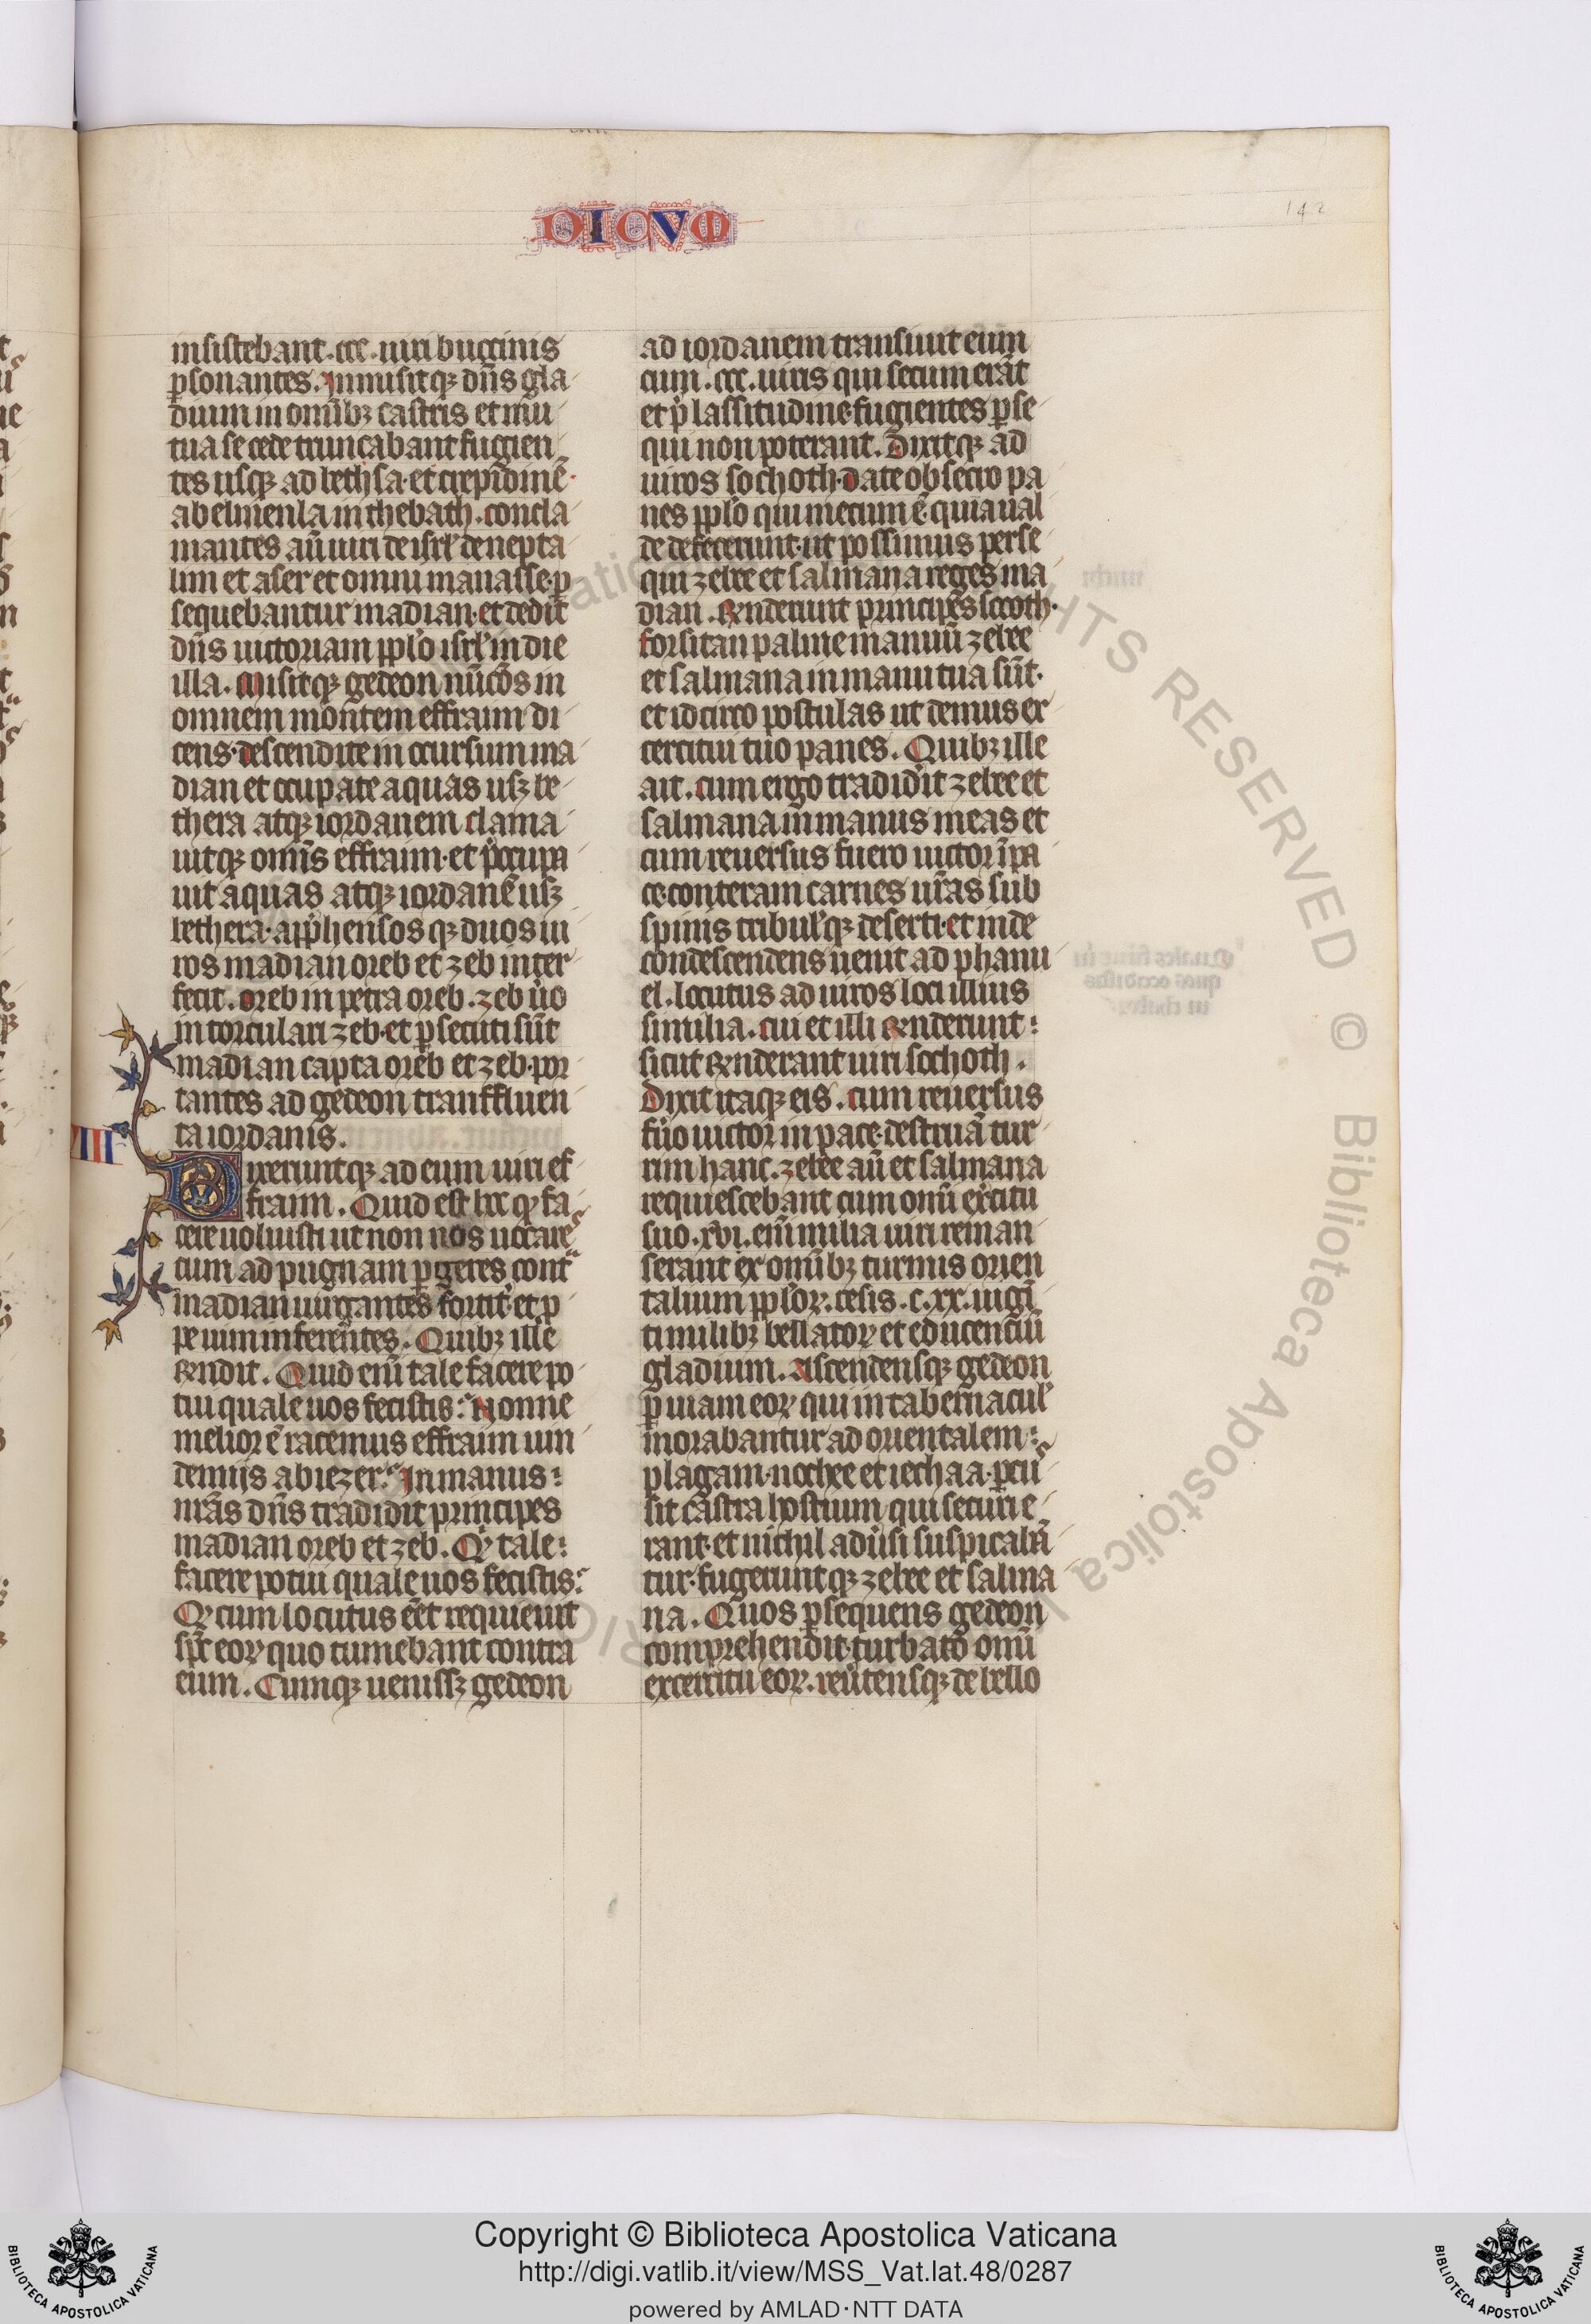 DICUM
142
insistebant .ccc. uiri buccinis
ꝑsonantes. Inmisitqꝫ dn̄s gla
dium in om̄ibꝫ castris et mu
tua se cede truncabant fugien
tes usqꝫ ad bethsa et crepidinē
abelmenla in thebath. concla
mantes aūt uiri de isrl̓ de nepta
lim et aser et omni manasse ꝑ
sequebantur madian et dedit
dn̄s uictoriam ppl̓o isrl̓ in die
illa. Misitqꝫ gedeon nūcios in
omnem montem effraim di
cens descendite in occursum ma
dian et occupate aquas usqꝫ be
thera atqꝫ iordanem clama
uitqꝫ omīs effraim et p̄occupa
uit aquas atqꝫ iordanē usqꝫ
bethera app̄hensosqꝫ duos ui
ros madian oreb et zeb inter
fecit. oreb in petra oreb. zeb ūo
in torculari zeb et ꝑsecuti sūt
madian capta oreb et zeb por
tantes ad gedeon tranffluen
ta iordanis.
VIII
Dixeruntqꝫ ad eum uiri ef
fraim. Quid est hoc qꝫ fa
cere uoluisti ut non nos uocares
cum ad pugnam ꝑgeres contᵃ
madian iurgantes fortiṫ et ꝓ
pe uim inferentes. Quibꝫ ille
rn̄dit. Quid eni tale facere po
tui quale uos fecistis? Nonne
melior ē racemus effraim uin
demiis abiezer? In manus
nr̄as dn̄s tradidit principes
madian oreb et zeb. Qꝫ tale
facere potui quale uos fecistis?
Qꝫ cum locutus eēt requieuit
sp̄c eoꝝ quo tumebant contra
eum. Cumqꝫ uenissꝫ gedeon
ad iordanem transiuit eum
cum .ccc. uiris qui secum erāt
et p̄ lassitudine fugientes ꝑse
qui non poterant. Dixitqꝫ ad
uiros sochoth. Date obsecro pa
nes ppl̓o qui mecum ē quia ual
de defecerunt ut possimus perse
qui zebee et salmana reges ma
dian. Rn̄derunt principes socoth
forsitan palme manuū zebee
et salmana in manu tua sūt
et idcirco postulas ut demus ex
ercitui tuo panes. Quibꝫ ille
ait. cum ergo tradidit zebee et
salmana in manus meas et
cum reuersus fuero uictor ī pa
ce conteram carnes ur̄as sub
spinis tribul̓qꝫ deserti et inde
condescendens uenit ad phanu
el. locutus ad uiros loci illius
similia. cui et illi rn̄derunt
sicut rn̄derant uiri sochoth.
Dixit itaqꝫ eis. cum reuersus
fūo uictor in pace destruā tur
rim hanc. zebee aūt et salmana
requiescebant cum omī ex̄citu
suo. xvi. enī milia uiri reman
serant ex om̄ibꝫ turmis orien
talium ppl̓oꝝ. cesis .c.xx. uigī
ti milibꝫ bellatoꝝ et educenciū
gladium. Ascendensqꝫ gedeon
ꝑ uiam eoꝝ qui in tabernacul̓
morabantur ad orientalem
plagam nochee et iechaa ꝑcus
sit castra hostium qui securi e
rant et nichil adūsi suspicabā
tur fugeruntqꝫ zebee et salma
na. Quos ꝑsequens gedeon
comprehendit turbato omī
exercitu eoꝝ. reūtensqꝫ de bello
Copyright © Biblioteca Apostolica Vaticana
http://digi.vatlib.it/view/MSS_Vat.lat.48/0287
powered by AMLAD·NTT DATA
BIBLIOTECA APOSTOLICA VATICANA
BIBLIOTECA APOSTOLICA VATICANA